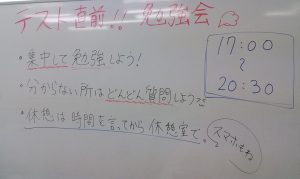 テスト直前!! 勉強会
・集中して勉強しよう!
・分からない所はどんどん質問しよう
・休憩は時間を言ってから休憩室で。
スマホもね
17:00
~
20:30